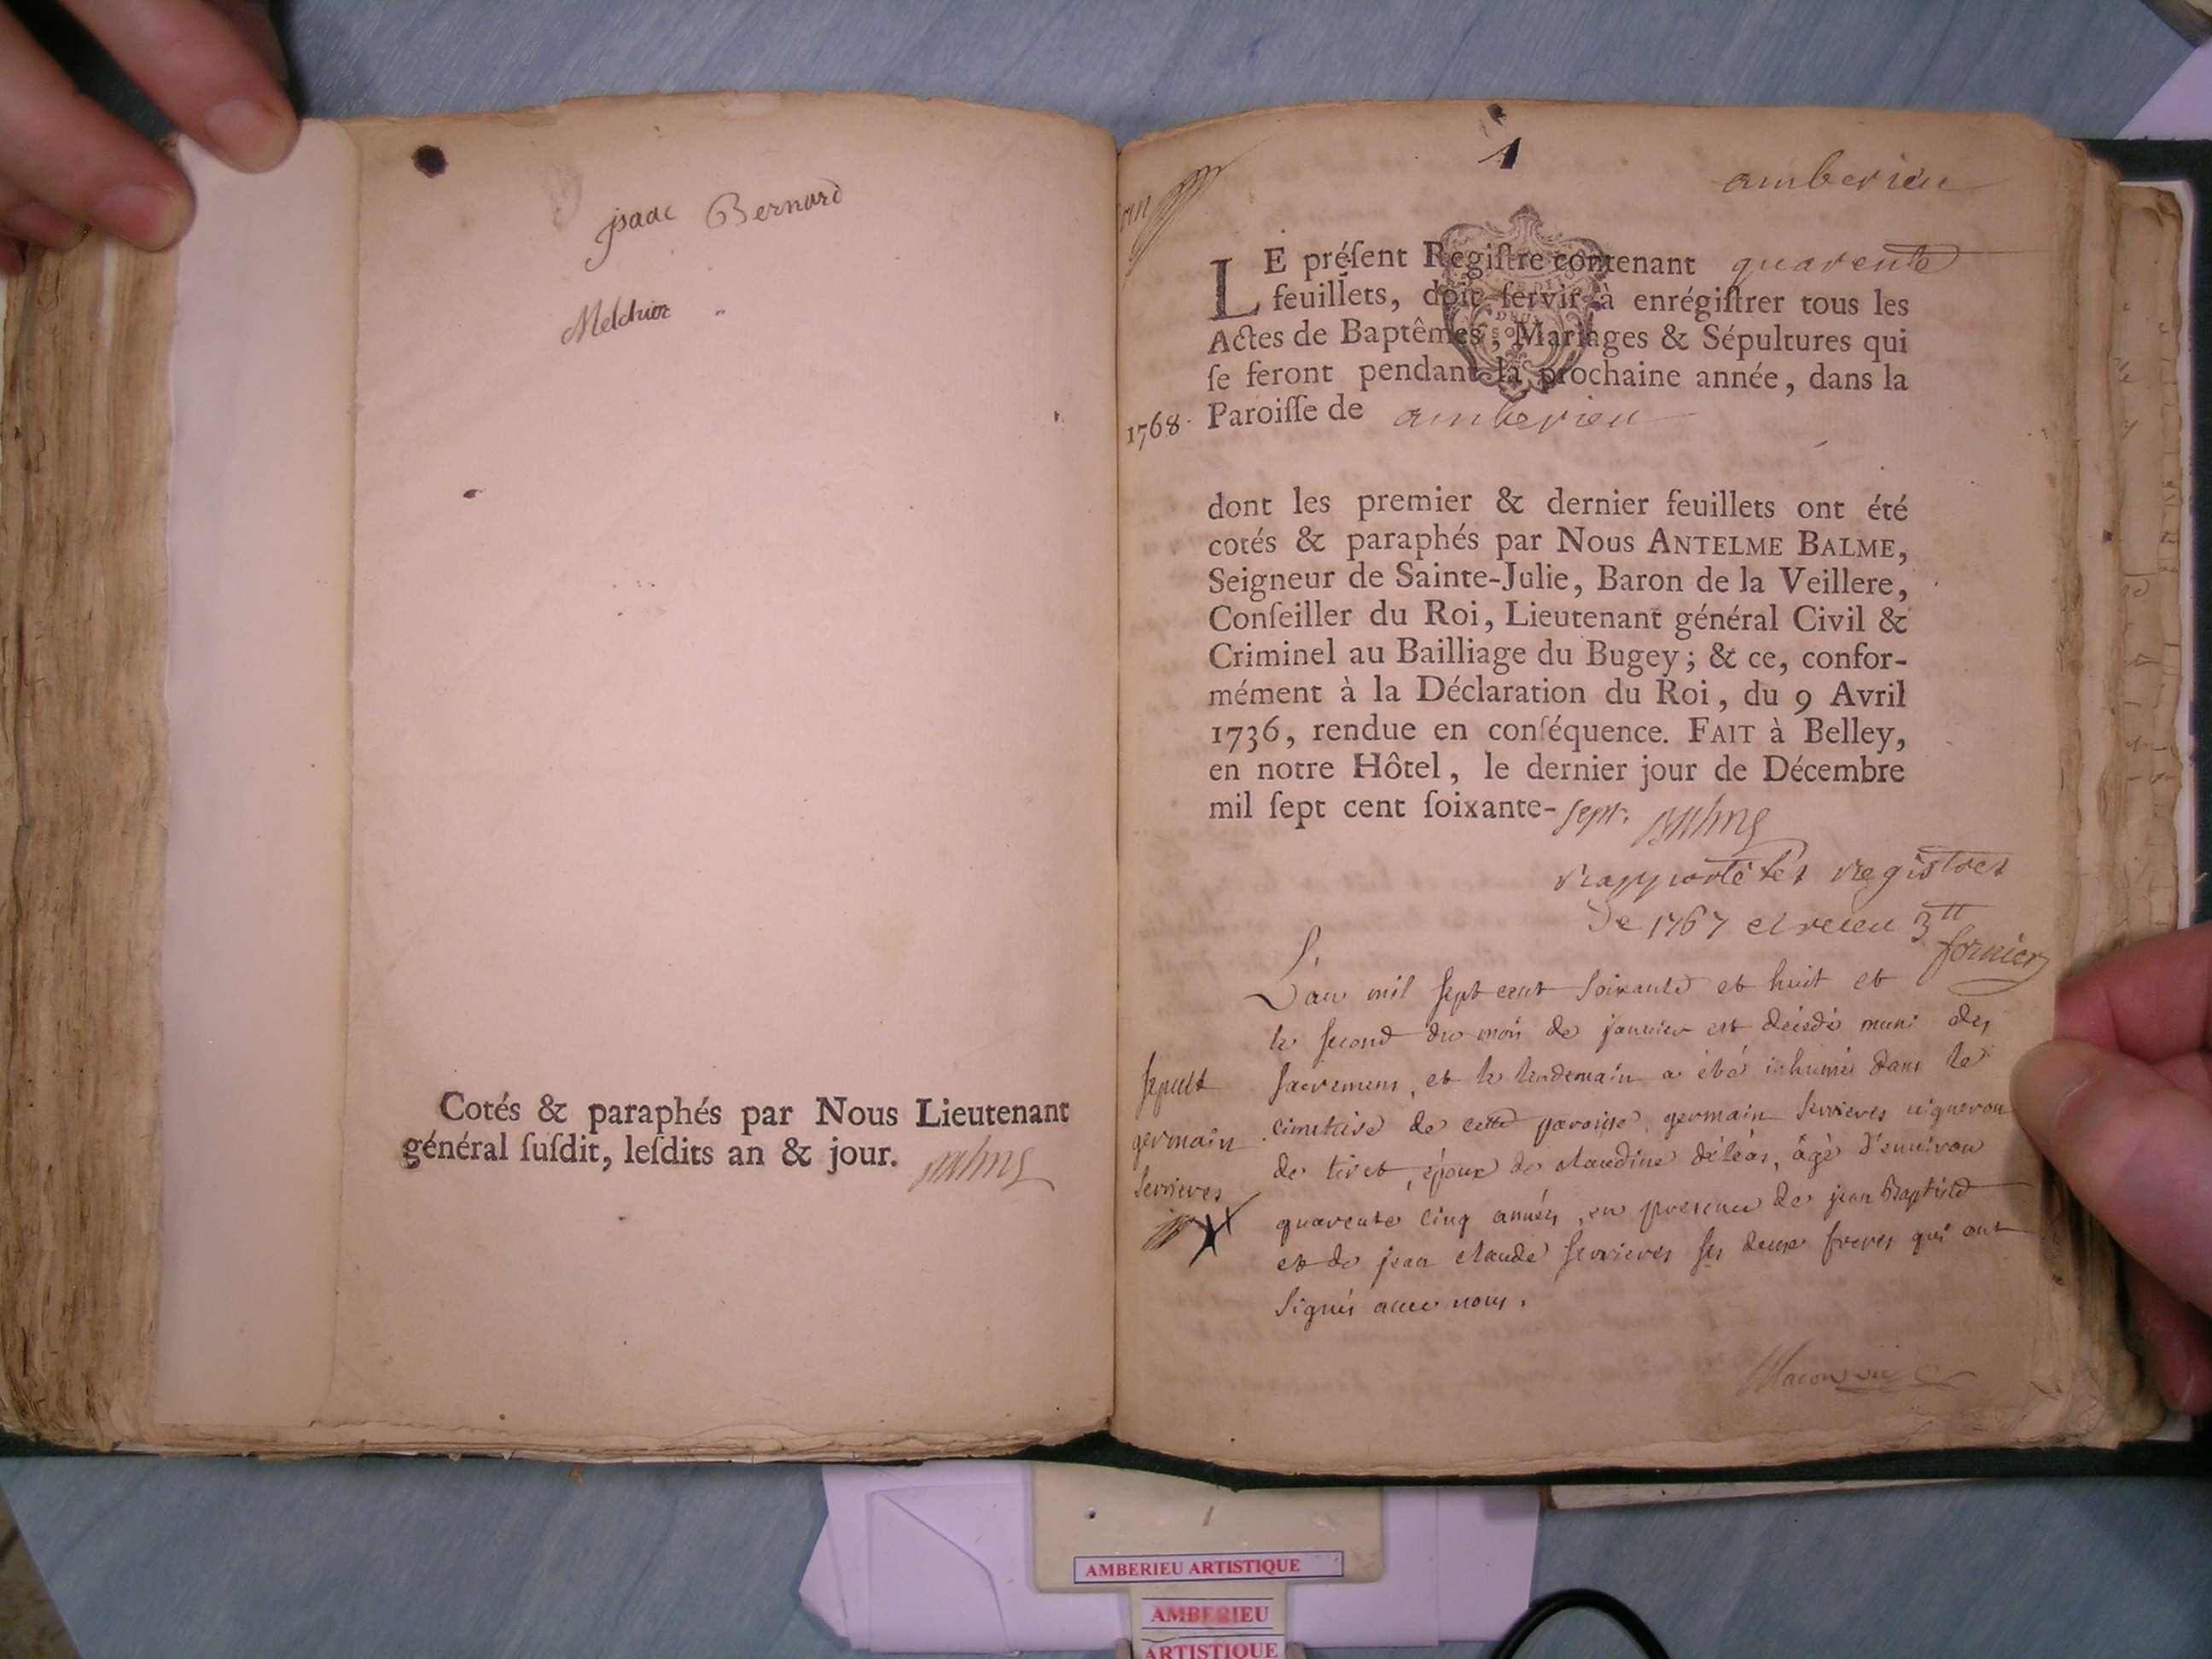 jsaac Bernard
Melchior
Cotés & paraphés par Nous Lieutenant
général ſuſdit, leſdits an & jour.
1
amberieu
LE préſent Regiſtre contenant quarente
feuillets, doit ſervir à enrégiſtrer tous les
Actes de Baptêmes, Mariages & Sépultures qui
ſe feront pendant la prochaine année, dans la
1768. Paroiſſe de amberieu
dont les premier & dernier feuillets ont été
cotés & paraphés par Nous ANTELME BALME,
Seigneur de Sainte-Julie, Baron de la Veillere,
Conſeiller du Roi, Lieutenant général Civil &
Criminel au Bailliage du Bugey; & ce, confor-
mément à la Déclaration du Roi, du 9 Avril
1736, rendue en conſéquence. FAIT à Belley,
en notre Hôtel, le dernier jour de Décembre
mil ſept cent ſoixante-sept. Balme
rapporté les registres
De 1767 et receu 3 tt
fornier
L'an mil sept cent soixante et huit et
le second du mois de janvier est décédé muni des
sacremens, et le lendemain a été inhumé dans le
cimetiere de cette paroisse, germain serrieres vigneron
de tiret, époux de claudine déléas, âgé d'environ
quarente cinq années, en presence de jean Baptiste
et de jean claude serrieres ses deux freres qui ont
signés avec nous.
sepult
germain
serrieres
AMBERIEU ARTISTIQUE
AMBERIEU
ARTISTIQUE